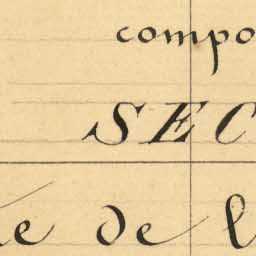 compo
SEC
de l